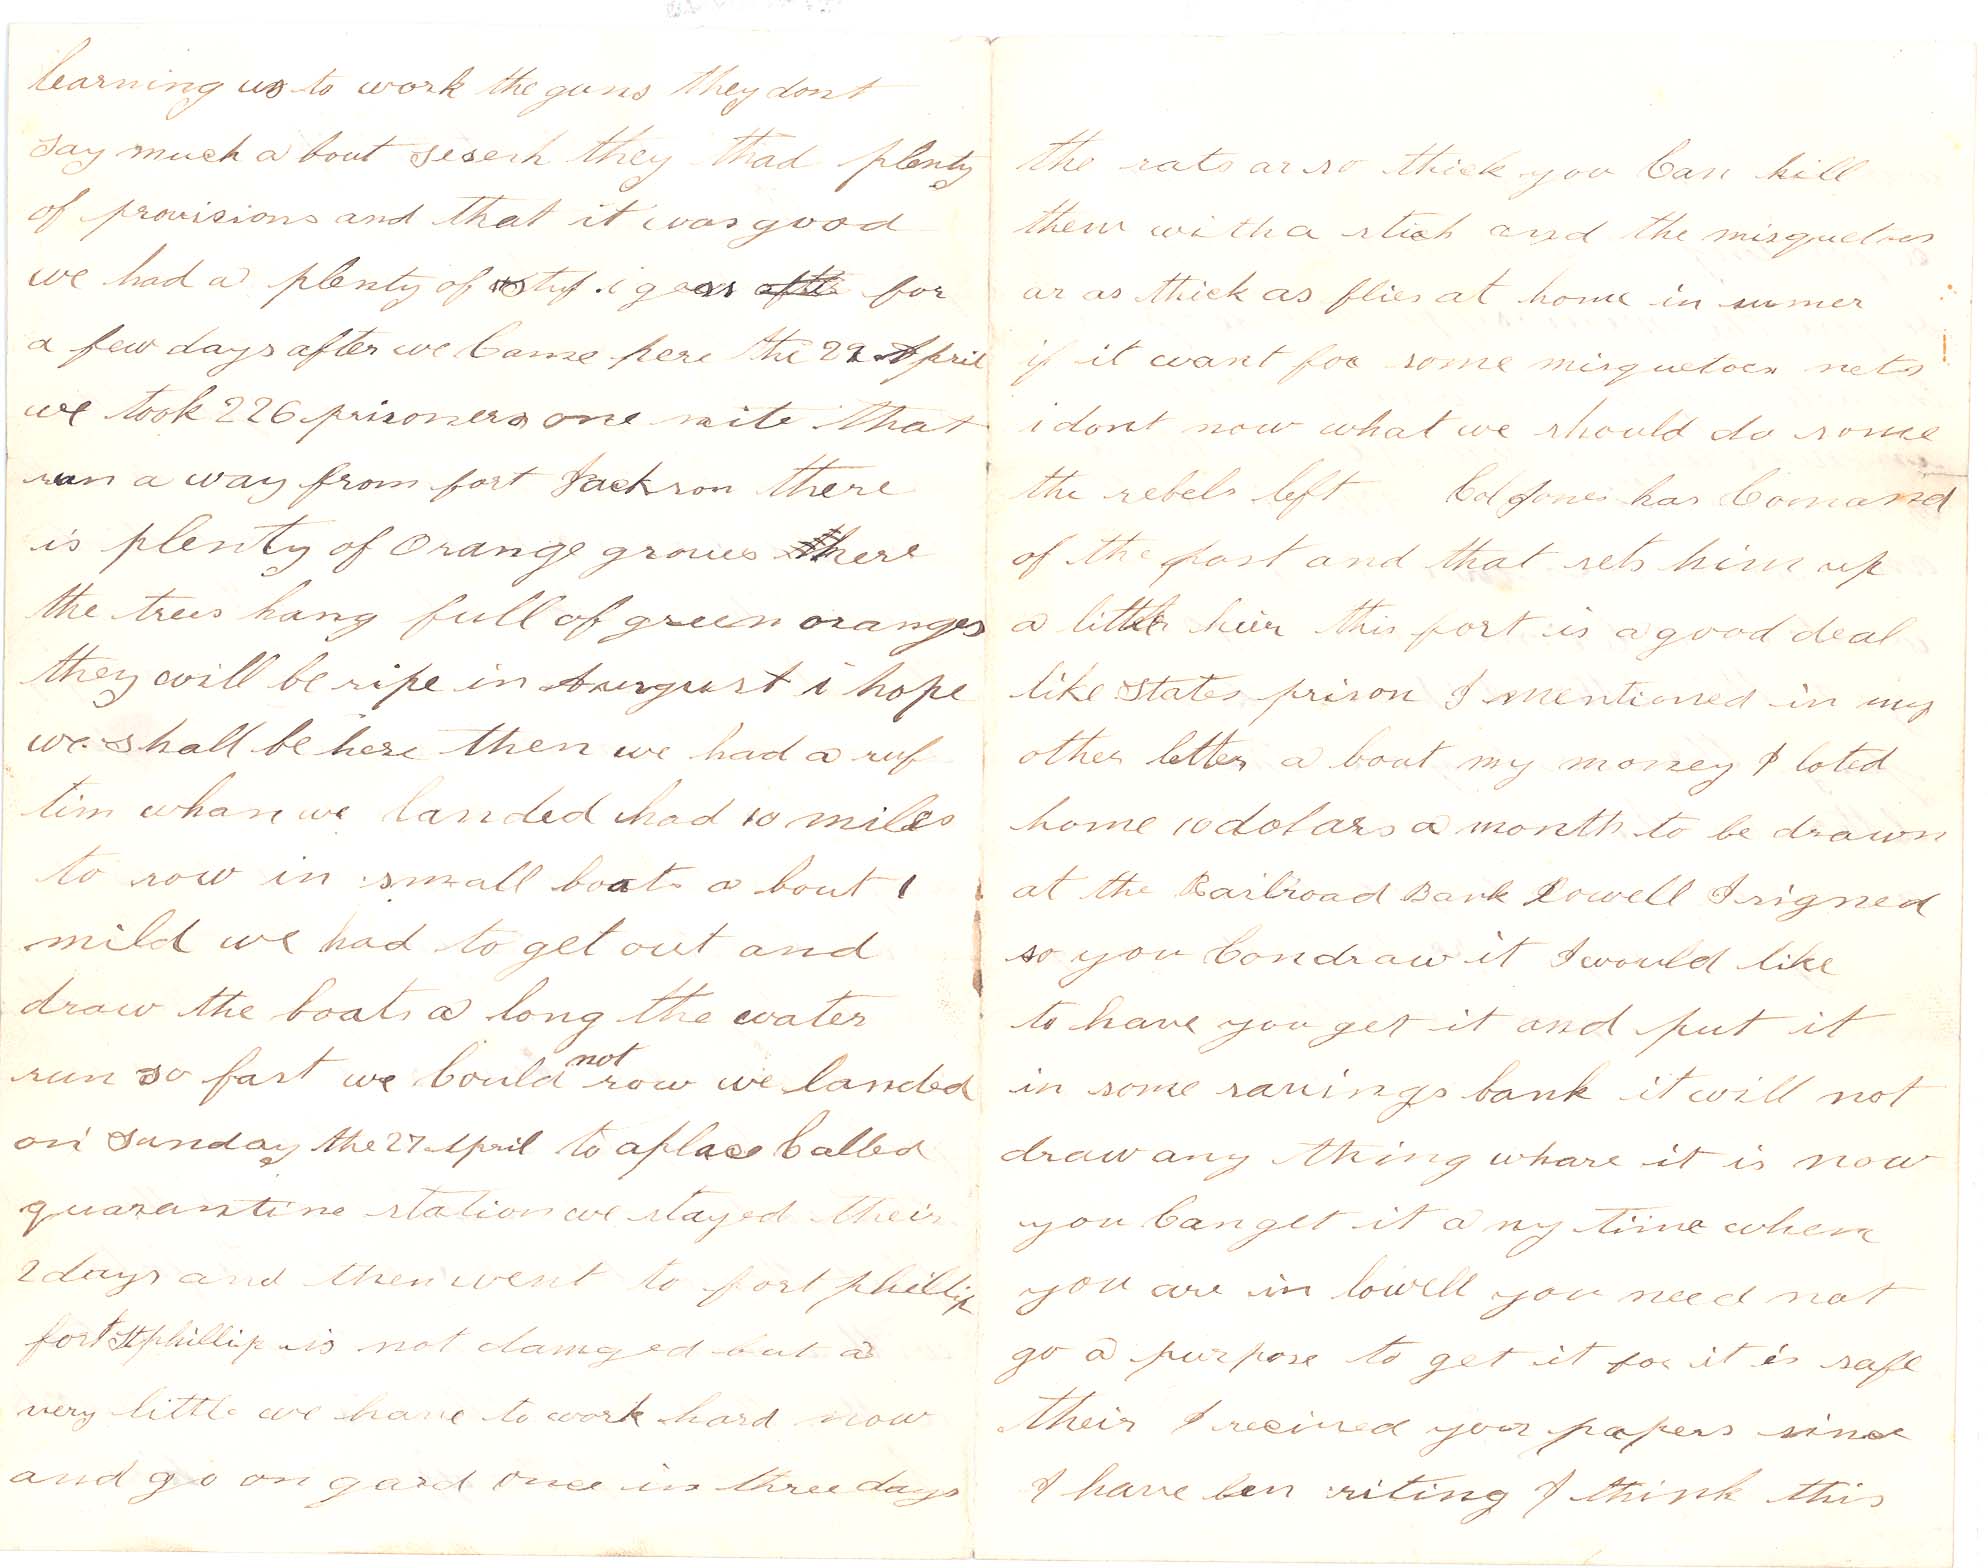 learning us to work the guns they dont
say much a bout sesesh they thad plenty
of provisions and that it was good
we had a plenty of stuf i gess for
a few days after we Came here the 29 April
we took 226 prisoners one nite that
run a way from fort Jackson there
is plenty of Orange groves there
the trees hang full of green oranges
they will be ripe in Aurgust i hope
we shall be here then we had a ruf
tim whan we landed had 10 miles
to row in small boats a bout 1
mild we had to get out and
draw the boats a long the water
run so fast we Could not row we landed
on Sunday the 27 April to a place Called
quarantine station we stayed their
2 days and then went to fort phillip
fort St phillip is not damged but a
very little we have to work hard now
and go on gard once in three days
the rats ar so thick you Can kill
them with a stick and the misquetoes
ar as thick as flies at home in sumer
if it want for some misquetoes nets
i dont now what we should do some
the rebels left Col Jones has Comand
of the post and that sets him up
a little hier this fort is a good deal
like States prison I mentioned in my
other letter a bout my money I loted
home 10 dolars a month to be drawn
at the Railroad Bank Lowell I signed
so you Can draw it I would like
to have you get it and put it
in some savings bank it will not
draw any thing whare it is now
you Can get it a ny time when
you are in lowell you need not
go a purpose to get it for it is safe
their I recived your papers since
I have ben riting I think this